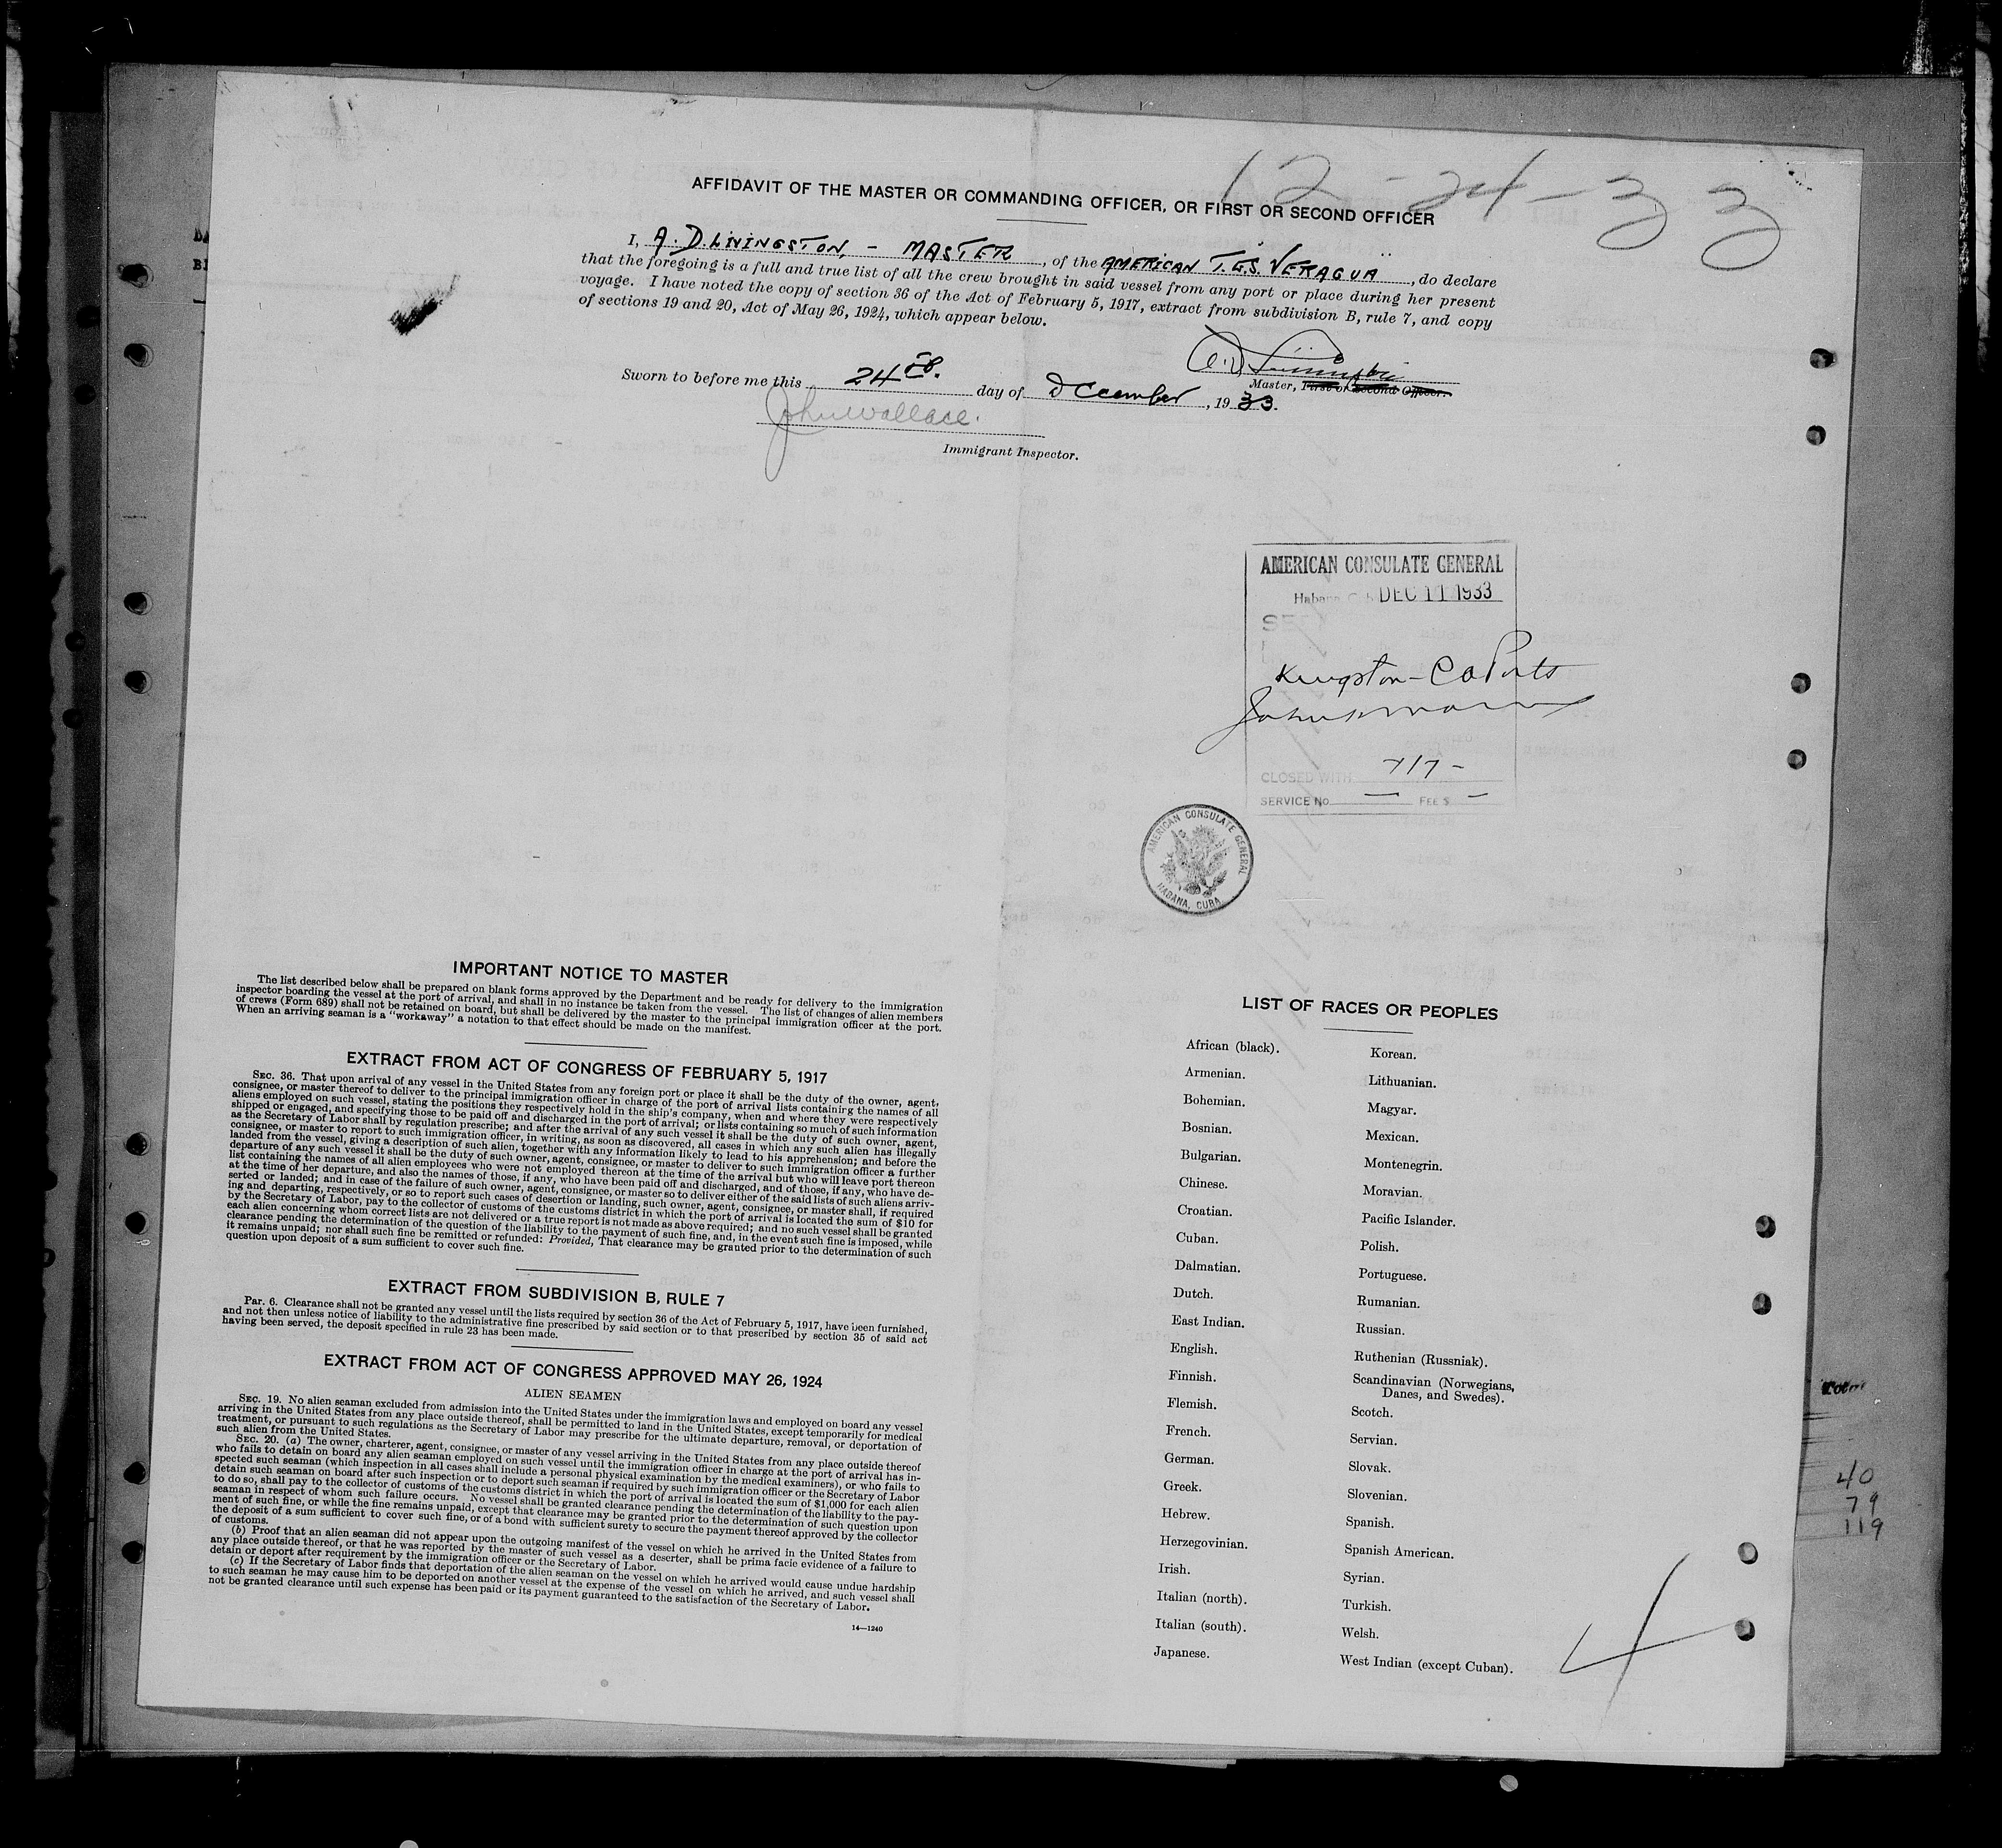 12-24-33
AFFIDAVIT OF THE MASTER OR COMMANDING OFFICER, OR FIRST OR SECOND OFFICER
I, A. D. LIVINGSTON, - MASTER, of the AMERICAN T.E.S. VERAGUA, do declare
that the foregoing is a full and true list of all the crew brought in said vessel from any port or place during her present
voyage. I have noted the copy of section 36 of the Act of February 5, 1917, extract from subdivision B, rule 7, and copy
of sections 19 and 20, Act of May 26, 1924, which appear below.
A. D. Livingston
Master, First or Second Officer.
Sworn to before me this 24th. day of December, 1933.
John Wallace.
Immigrant Inspector.
AMERICAN CONSULATE GENERAL
Habana DEC 11 1933
Kingston - CA Ports
717 -
CLOSED WITH
SERVICE No. — FEE $ —
AMERICAN CONSULATE GENERAL
HABANA, CUBA
IMPORTANT NOTICE TO MASTER
The list described below shall be prepared on blank forms approved by the Department and be ready for delivery to the immigration
inspector boarding the vessel at the port of arrival, and shall in no instance be taken from the vessel. The list of changes of alien members
of crews (Form 689) shall not be retained on board, but shall be delivered by the master to the principal immigration officer at the port.
When an arriving seaman is a "workaway" a notation to that effect should be made on the manifest.
EXTRACT FROM ACT OF CONGRESS OF FEBRUARY 5, 1917
SEC. 36. That upon arrival of any vessel in the United States from any foreign port or place it shall be the duty of the owner, agent,
consignee, or master thereof to deliver to the principal immigration officer in charge of the port of arrival lists containing the names of all
aliens employed on such vessel, stating the positions they respectively hold in the ship's company, when and where they were respectively
shipped or engaged, and specifying those to be paid off and discharged in the port of arrival; or lists containing so much of such information
as the Secretary of Labor shall by regulation prescribe; and after the arrival of any such vessel it shall be the duty of such owner, agent,
consignee, or master to report to such immigration officer, in writing, as soon as discovered, all cases in which any such alien has illegally
landed from the vessel, giving a description of such alien, together with any information likely to lead to his apprehension; and before the
departure of any such vessel it shall be the duty of such owner, agent, consignee, or master to deliver to such immigration officer a further
list containing the names of all alien employees who were not employed thereon at the time of the arrival but who will leave port thereon
at the time of her departure, and also the names of those, if any, who have been paid off and discharged, and of those, if any, who have de-
serted or landed; and in case of the failure of such owner, agent, consignee, or master so to deliver either of the said lists of such aliens arriv-
ing and departing, respectively, or so to report such cases of desertion or landing, such owner, agent, consignee, or master shall, if required
by the Secretary of Labor, pay to the collector of customs of the customs district in which the port of arrival is located the sum of $10 for
each alien concerning whom correct lists are not delivered or a true report is not made as above required; and no such vessel shall be granted
clearance pending the determination of the question of the liability to the payment of such fine, and, in the event such fine is imposed, while
it remains unpaid; nor shall such fine be remitted or refunded: Provided, That clearance may be granted prior to the determination of such
question upon deposit of a sum sufficient to cover such fine.
EXTRACT FROM SUBDIVISION B, RULE 7
Par. 6. Clearance shall not be granted any vessel until the lists required by section 36 of the Act of February 5, 1917, have been furnished,
and not then unless notice of liability to the administrative fine prescribed by said section or to that prescribed by section 35 of said act
having been served, the deposit specified in rule 23 has been made.
EXTRACT FROM ACT OF CONGRESS APPROVED MAY 26, 1924
ALIEN SEAMEN
SEC. 19. No alien seaman excluded from admission into the United States under the immigration laws and employed on board any vessel
arriving in the United States from any place outside thereof, shall be permitted to land in the United States, except temporarily for medical
treatment, or pursuant to such regulations as the Secretary of Labor may prescribe for the ultimate departure, removal, or deportation of
such alien from the United States.
SEC. 20. (a) The owner, charterer, agent, consignee, or master of any vessel arriving in the United States from any place outside thereof
who fails to detain on board any alien seaman employed on such vessel until the immigration officer in charge at the port of arrival has in-
spected such seaman (which inspection in all cases shall include a personal physical examination by the medical examiners), or who fails to
detain such seaman on board after such inspection or to deport such seaman if required by such immigration officer or the Secretary of Labor
to do so, shall pay to the collector of customs of the customs district in which the port of arrival is located the sum of $1,000 for each alien
seaman in respect of whom such failure occurs. No vessel shall be granted clearance pending the determination of the liability to the pay-
ment of such fine, or while the fine remains unpaid, except that clearance may be granted prior to the determination of such question upon
the deposit of a sum sufficient to cover such fine, or of a bond with sufficient surety to secure the payment thereof approved by the collector
of customs.
(b) Proof that an alien seaman did not appear upon the outgoing manifest of the vessel on which he arrived in the United States from
any place outside thereof, or that he was reported by the master of such vessel as a deserter, shall be prima facie evidence of a failure to
detain or deport after requirement by the immigration officer or the Secretary of Labor.
(c) If the Secretary of Labor finds that deportation of the alien seaman on the vessel on which he arrived would cause undue hardship
to such seaman he may cause him to be deported on another vessel at the expense of the vessel on which he arrived, and such vessel shall
not be granted clearance until such expense has been paid or its payment guaranteed to the satisfaction of the Secretary of Labor.
14—1240
LIST OF RACES OR PEOPLES
African (black).
Armenian.
Bohemian.
Bosnian.
Bulgarian.
Chinese.
Croatian.
Cuban.
Dalmatian.
Dutch.
East Indian.
English.
Finnish.
Flemish.
French.
German.
Greek.
Hebrew.
Herzegovinian.
Irish.
Italian (north).
Italian (south).
Japanese.
Korean.
Lithuanian.
Magyar.
Mexican.
Montenegrin.
Moravian.
Pacific Islander.
Polish.
Portuguese.
Rumanian.
Russian.
Ruthenian (Russniak).
Scandinavian (Norwegians,
Danes, and Swedes).
Scotch.
Servian.
Slovak.
Slovenian.
Spanish.
Spanish American.
Syrian.
Turkish.
Welsh.
West Indian (except Cuban).
40
79
119